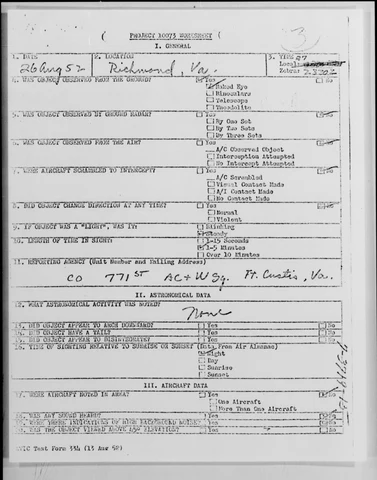 PROJECT 10073 WORKSHEET
I. GENERAL
1. DATE
26 Aug 52
2. LOCATION
Richmond, Va.
3. TIME
Local
Zebra
4. WAS OBJECT OBSERVED FROM THE GROUND? Yes No
Naked Eye
Binoculars
Telescope
Theodolite
5. WAS OBJECT OBSERVED BY GROUND RADAR? Yes No
By One Set
By Two Sets
By Three Sets
6. WAS OBJECT OBSERVED FROM THE AIR? Yes No
A/C Observed Object
Interception Attempted
No Intercept Attempted
7. WERE AIRCRAFT SCRAMBLED TO INTERCEPT? Yes No
A/C Scrambled
Visual Contact Made
A/I Contact Made
No Contact Made
8. DID OBJECT CHANGE DIRECTION AT ANY TIME? Yes No
Normal
Violent
9. IF OBJECT WAS A "LIGHT", WAS IT: Blinking
Steady
10. LENGTH OF TIME IN SIGHT: 1-15 Seconds
1-5 Minutes
Over 10 Minutes
11. REPORTING AGENCY (Unit Number and Mailing Address)
CO 771ST AC+W Sq. Ft. Custis, Va.
II. ASTRONOMICAL DATA
12. WHAT ASTRONOMICAL ACTIVITY WAS NOTED?
None
13. DID OBJECT APPEAR TO ARCH DOWNWARD? Yes No
14. DID OBJECT HAVE A TAIL? Yes No
15. DID OBJECT APPEAR TO DISINTEGRATE? Yes No
16. TIME OF SIGHTING RELATIVE TO SUNRISE OR SUNSET (Data From Air Almanac)
Night
Day
Sunrise
Sunset
III. AIRCRAFT DATA
17. WERE AIRCRAFT NOTED IN AREA? Yes No
One Aircraft
More Than One Aircraft
18. WAS ANY SOUND HEARD? Yes No
19. WERE THERE INDICATIONS OF HIGH BACKGROUND NOISE? Yes No
20. WAS THE OBJECT VIEWED ABOVE 45° ELEVATION? Yes No
ATIC Test Form 334 (13 Aug 52)